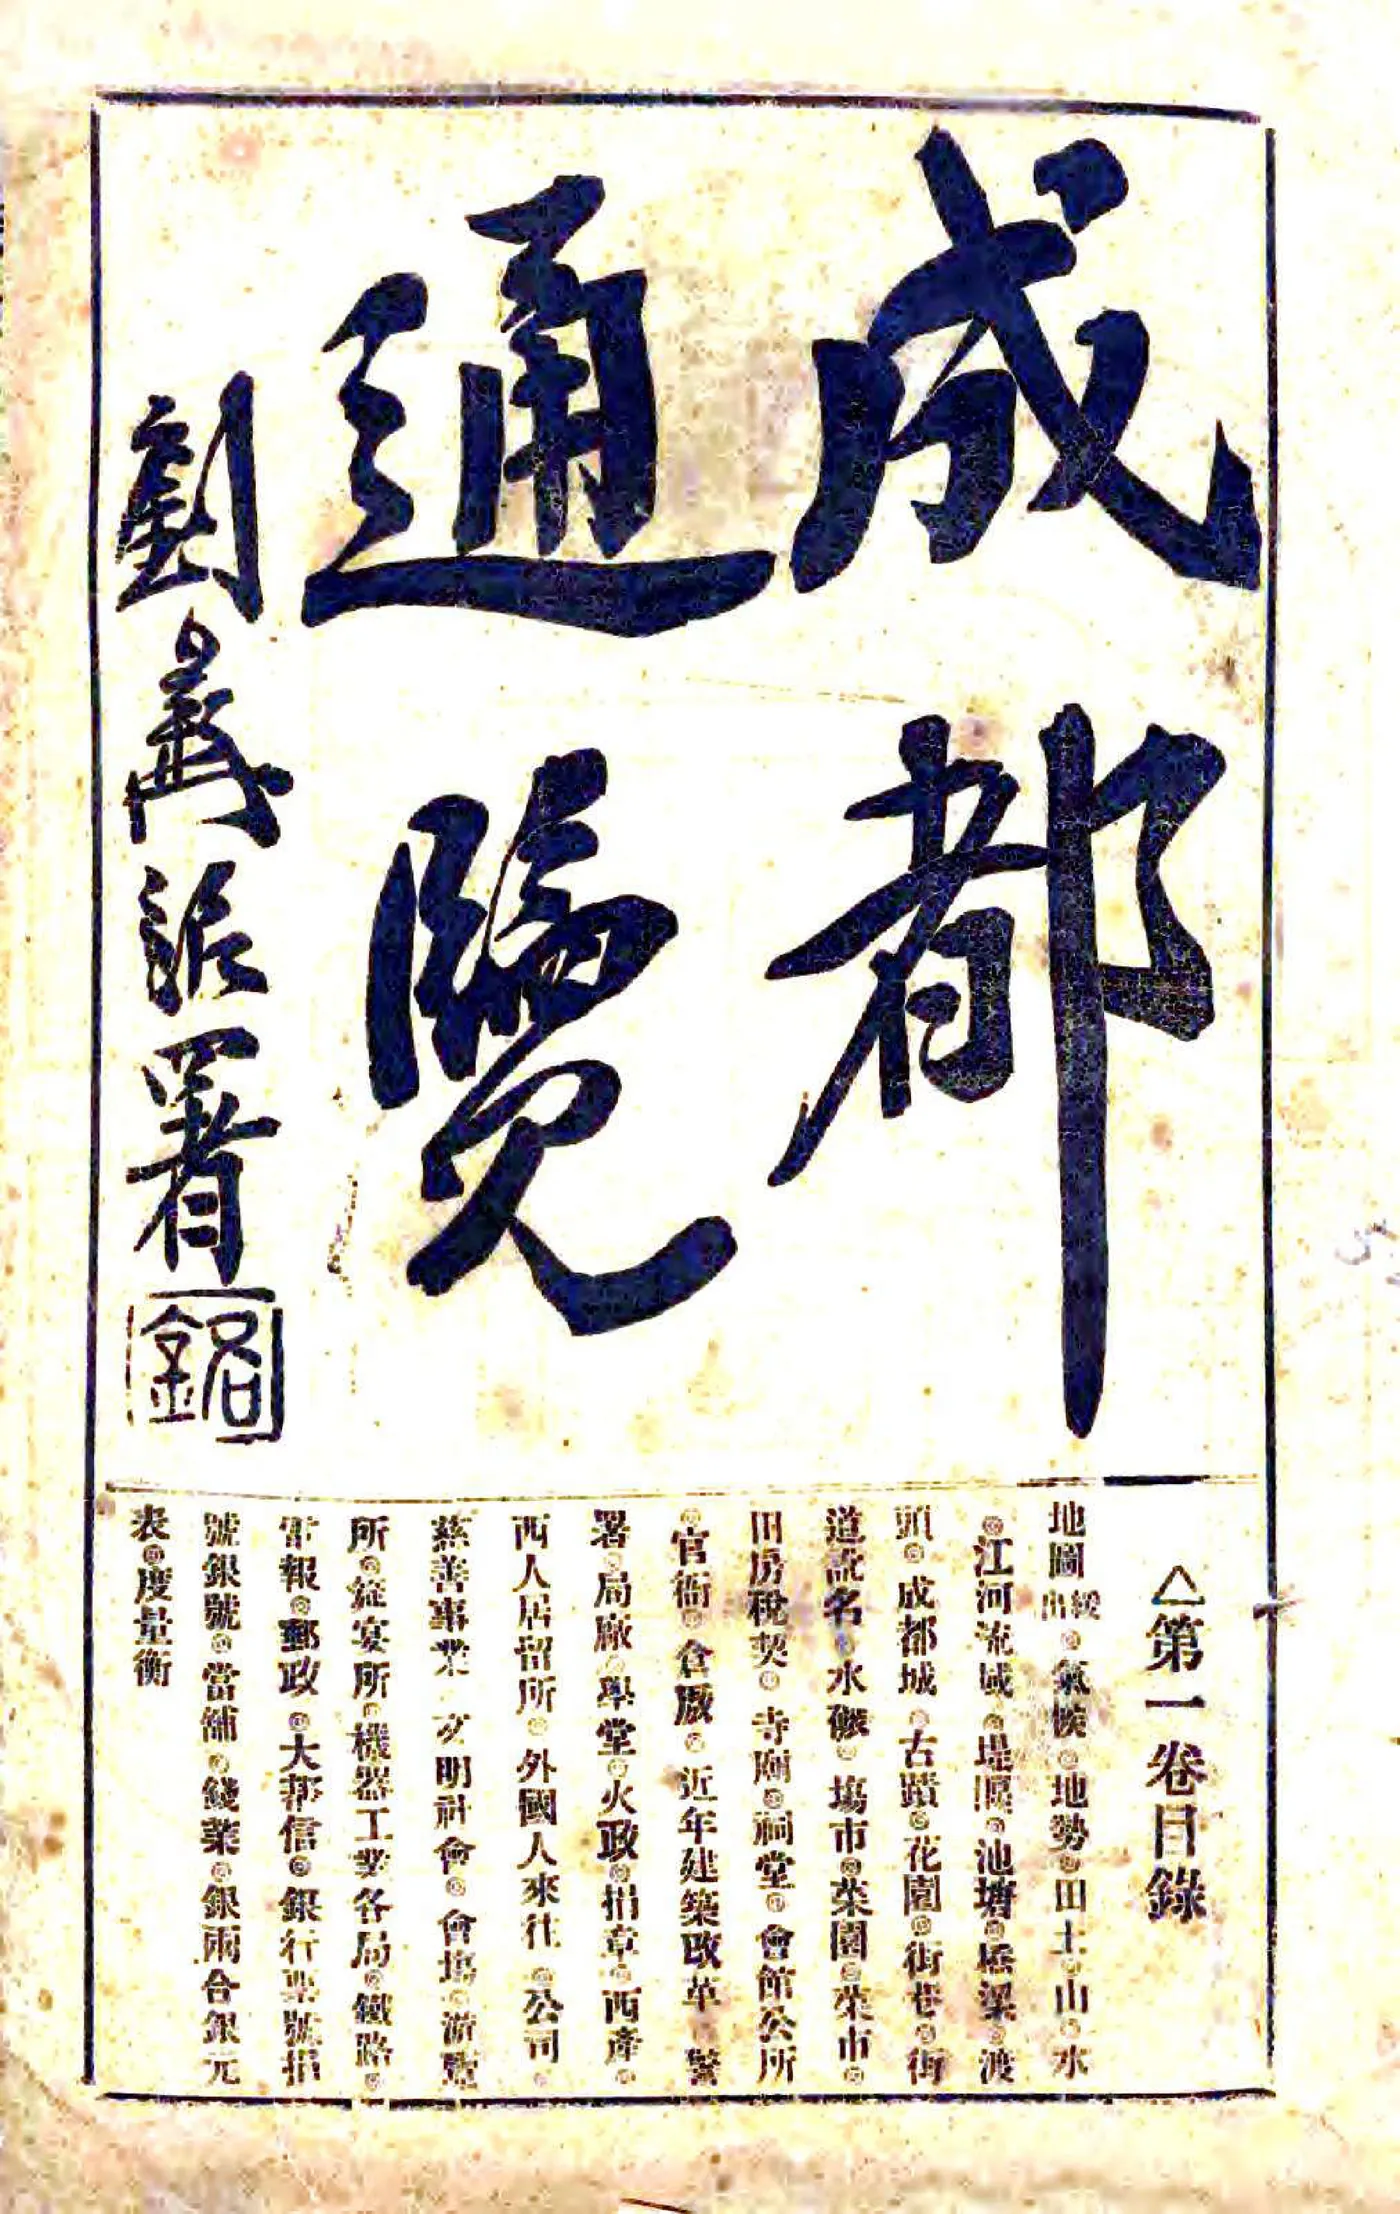 成都
通覽
劉彝銘署
銘
△第一卷目錄
地圖緩出◎氣候◎地勢◎田土◎山◎水
◎江河流域◎堤堰◎池塘◎橋梁◎渡
頭◎成都城◎古蹟◎花園◎街巷◎街
道訛名◎水碾◎場市◎菜園◎菜市◎
田房稅契◎寺廟◎祠堂◎會館公所
◎官衙◎倉厫◎近年建築改革◎警
署◎局廠◎學堂◎火政◎捐章◎西產◎
西人居留所◎外國人來往◎公司◎
慈善事業◎文明社會◎會場◎游覽
所◎筵宴所◎機器工業各局◎鐵路◎
電報◎郵政◎大幫信◎銀行票號捐
號銀號◎當舖◎錢業◎銀兩合銀元
表◎度量衡